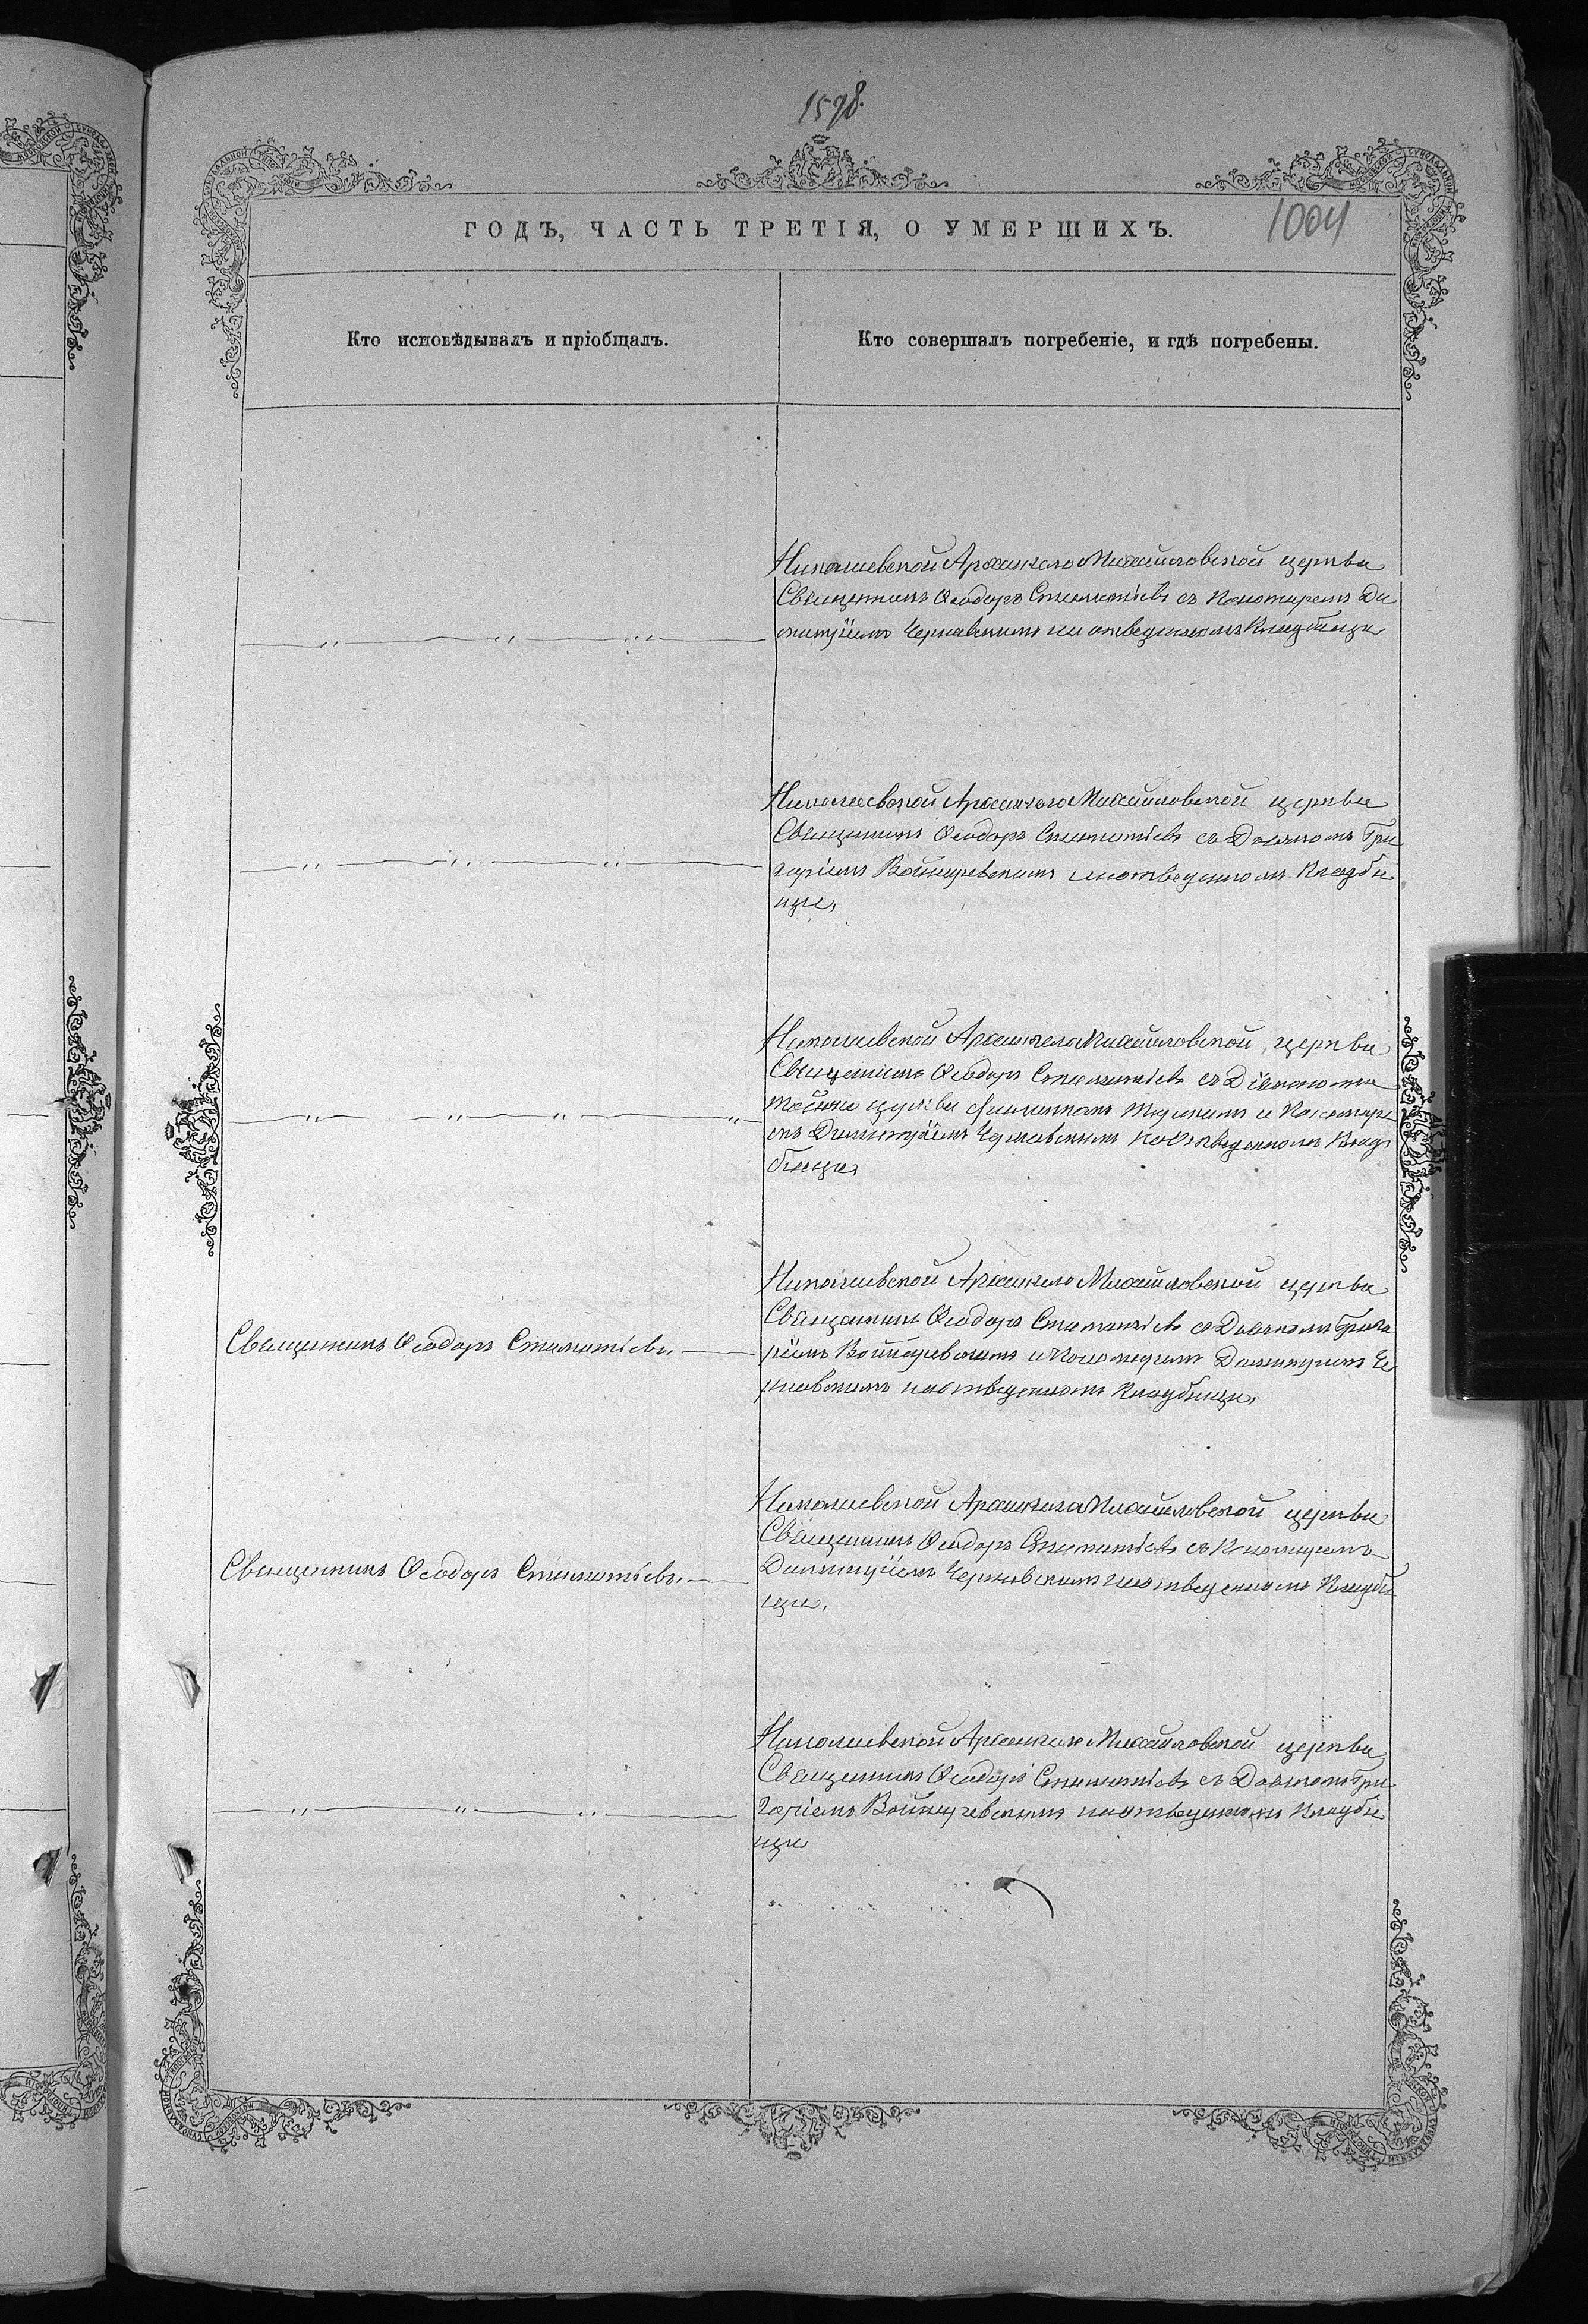 1598.
ГОДЪ, ЧАСТЬ ТРЕТІЯ, О УМЕРШИХЪ.
1004
Кто исповѣдывалъ и пріобщалъ.
Кто совершалъ погребеніе, и гдѣ погребены.
Николаевской Архангело Михайловской церкви
Священникъ Ѳеодоръ Стаматіевъ съ Пономаремъ Ди
митріемъ Чернявскимъ на отведенномъ Кладбище
Николаевской Архангело Михайловской церкви
Священникъ Ѳеодоръ Стаматіевъ съ Дьячкомъ Гри
горіемъ Войнаревскимъ на отведенномъ Кладби
ще,
Николаевской Архангело Михайловской церкви
Священникъ Ѳеодоръ Стаматіевъ съ Діакономъ
тойже церкви и Пономаре
мъ Димитріемъ Чернявскимъ на Отведенномъ Клад
бище,
Священникъ Ѳеодоръ Стаматіевъ.
Николаевской Архангело Михайловской церкви
Священникъ Ѳеодоръ Стаматіевъ съ Дьячкомъ Григо
ріемъ Войнаревскимъ и Пономаремъ Димитріемъ Че
рнявскимъ на отведенномъ Кладбище,
Священникъ Ѳеодоръ Стаматіевъ.
Николаевской Архангела Михайловской церкви
Священникъ Ѳеодоръ Стаматіевъ съ Пономаремъ
Димитріемъ Чернявскимъ на отведенномъ Кладби
ще,
Николаевской Архангело Михайловской церкви
Священникъ Ѳеодоръ Стаматіевъ съ Дьячкомъ Гри
горіемъ Войнаревскимъ на отведенномъ Кладби
ще